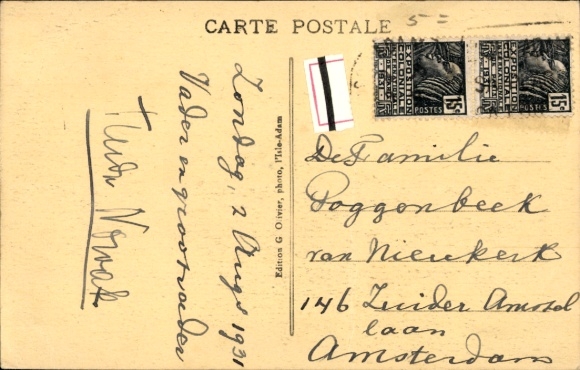 CARTE POSTALE
5 =
EXPOSITION COLONIALE
POSTES
15c
EXPOSITION COLONIALE
POSTES
15c
Zondag, 2 Augs 1931
Vader en grootvader
Edition G. Olivier, photo, l'Isle-Adam
De Familie
Poggenbeek
van Nieukerk
146 Zuider Amstel
laan
Amsterdam